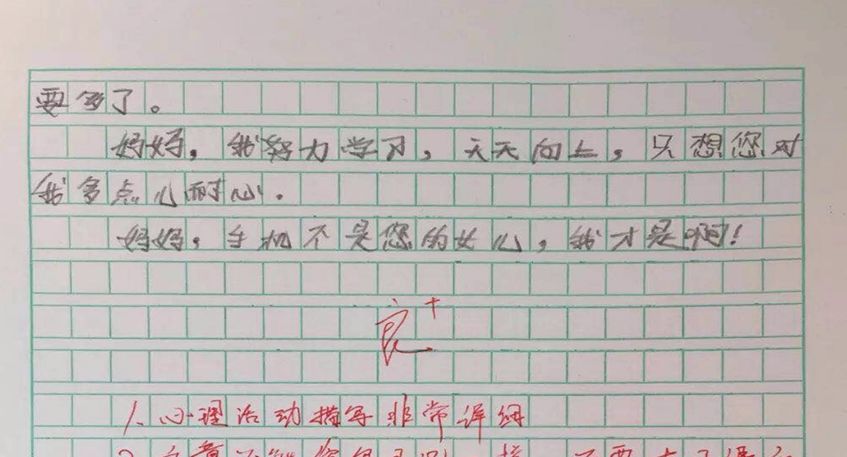 要多了。
妈妈，我努力学习，天天向上，只想您对
我多点儿耐心。
妈妈，手机不是您的女儿，我才是啊！
良+
1、心理活动描写非常详细